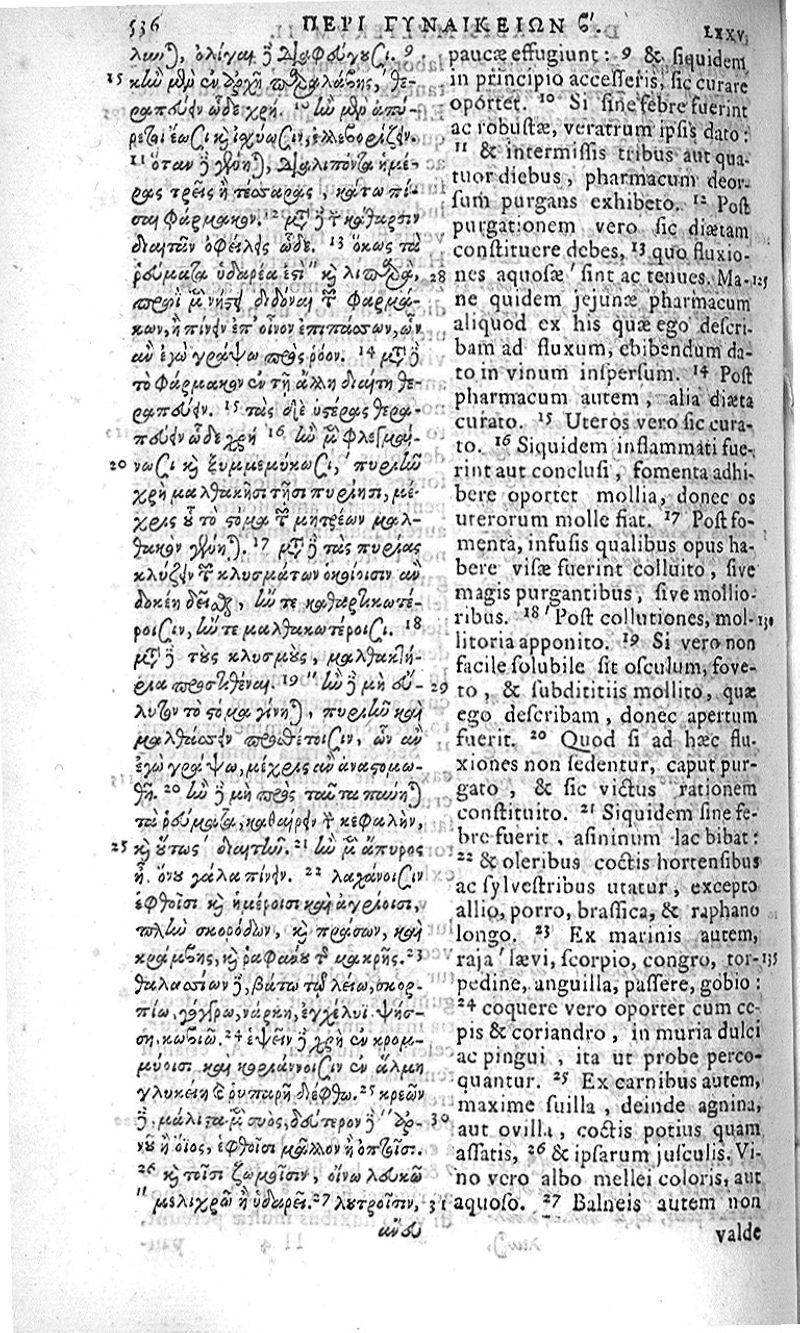 536
ΠΕΡΙ ΓΥΝΑΙΚΕΙΩΝ β'.
LXXV.
ὀλίγαι δὲ διαφεύγουσι. 9
15 κἢν μὲν ἐν ἀρχῇ παραλάβῃς, θε-
ραπεύειν ὧδε χρή. 10 ἢν μὲν ἀπύ-
ρετοι ἔωσι καὶ ἰσχύωσιν, ἐλλεβορίζειν.
11 ὅταν δὲ γένηται, διαλιπόντα ἡμέ-
ρας τρεῖς ἢ τέσσαρας, κάτω πί-
σαι φάρμακον. 12 μετὰ δὲ τὴν κάθαρσιν
διαιτᾶν ὀφείλεις ὧδε. 13 ὅκως τὰ
ῥεύματα ὑδαρέα ἐστὶ " καὶ λιπαρὰ,
πρωῒ μὲν νήστει διδόναι τῶν φαρμά-
κων, ἢ πίνειν ἐπ' οἶνον ἐπιπάσσων, ὧν
ἂν ἐγὼ γράψω πρὸς ῥόον. 14 μετὰ δὲ
τὸ φάρμακον ἐν τῇ ἄλλῃ διαίτῃ θε-
ραπεύειν. 15 τὰς δὲ ὑστέρας θερα-
πεύειν ὧδε χρή 16 ἢν μὲν φλεγμαί-
20 νωσι καὶ ξυμμεμύκωσι, ' πυριῆν
χρὴ μαλθακῇσι τῇσι πυρίῃσι, μέ-
χρις οὗ τὸ στόμα τῶν μητρέων μαλ-
θακὸν γένηται. 17 μετὰ δὲ τὰς πυρίας
κλύζειν τῶν κλυσμάτων ὁκοίοισιν ἂν
δοκέῃ δεῖσθαι, ἤν τε καθαρτικωτέ-
ροισιν, ἤν τε μαλθακωτέροισι. 18
μετὰ δὲ τοὺς κλυσμοὺς, μαλθακτή-
ρια προστιθέναι. 19 " ἢν δὲ μὴ εὔ-
λυτον τὸ στόμα γίνηται, πυριῆν καὶ
μαλθάσσειν προσθέτοισιν, ὧν ἂν
ἐγὼ γράψω, μέχρις ἂν ἀναστομω-
θῇ. 20 ἢν δὲ μὴ πρὸς ταῦτα παύηται
τὰ ῥεύματα, καθαίρειν τὴν κεφαλὴν,
25 καὶ οὕτως διαιτᾶν. 21 ἢν μὲν ἄπυρος
ᾖ. ὄνου γάλα πίνειν. 22 λαχάνοισιν
ἑφθοῖσι καὶ ἡμέροισι καὶ ἀγρίοισι,
πλὴν σκορόδων, καὶ πράσων, καὶ
κράμβης, καὶ ῥαφάνου τῆς μακρῆς. 23
θαλασσίων δὲ, βάτῳ τῷ λείῳ, σκορ-
πίῳ, γόγγρῳ, νάρκῃ, ἐγχέλυϊ ψήσ-
σῃ. κωβιῷ. 24 ἑψεῖν δὲ χρὴ ἐν κρομ-
μύοισι καὶ κοριάννοισιν ἐν ἅλμῃ
γλυκείῃ καὶ ῥυπαρῇ διέφθῳ. 25 κρεῶν
δὲ, μάλιστα μὲν συὸς, δεύτερον δὲ " ἀρ-
νοῦ ἢ ὄϊος, ἑφθοῖσι μᾶλλον ἢ ὀπτοῖσι.
26 καὶ τοῖσι ζωμοῖσιν, οἴνῳ λευκῷ
" μελιχρῷ ἢ ὑδαρεῖ. 27 λουτροῖσιν,
paucæ effugiunt : 9 & siquidem
in principio accesseris, sic curare
oportet. 10 Si sine febre fuerint
ac robustæ, veratrum ipsis dato :
11 & intermissis tribus aut qua-
tuor diebus, pharmacum deor-
sum purgans exhibeto. 12 Post
purgationem vero sic diætam
constituere debes, 13 quo fluxio-
28 nes aquosæ ' sint ac tenues. Ma- 125
ne quidem jejunæ pharmacum
aliquod ex his quæ ego descri-
bam ad fluxum, ebibendum da-
to in vinum inspersum. 14 Post
pharmacum autem, alia diæta
curato. 15 Uteros vero sic cura-
to. 16 Siquidem inflammati fue-
rint aut conclusi, fomenta adhi-
bere oportet mollia, donec os
uterorum molle fiat. 17 Post fo-
menta, infusis qualibus opus ha-
bere visæ fuerint colluito, sive
magis purgantibus, sive mollio-
ribus. 18 ' Post collutiones, mol- 130
litoria apponito. 19 Si vero non
facile solubile sit osculum, fove-
29 to, & subdititiis mollito, quæ
ego describam, donec apertum
fuerit. 20 Quod si ad hæc flu-
xiones non sedentur, caput pur-
gato, & sic victus rationem
constituito. 21 Siquidem sine fe-
bre fuerit, asininum lac bibat :
22 & oleribus coctis hortensibus
ac sylvestribus utatur, excepto
allio, porro, brassica, & raphano
longo. 23 Ex marinis autem,
raja ' lævi, scorpio, congro, tor- 135
pedine, anguilla, passere, gobio :
24 coquere vero oportet cum ce-
pis & coriandro, in muria dulci
ac pingui, ita ut probe perco-
quantur. 25 Ex carnibus autem,
30 maxime suilla, deinde agnina,
aut ovilla, coctis potius quam
assatis, 26 & ipsarum jusculis. Vi-
no vero albo mellei coloris, aut
31 aquoso. 27 Balneis autem non
valde